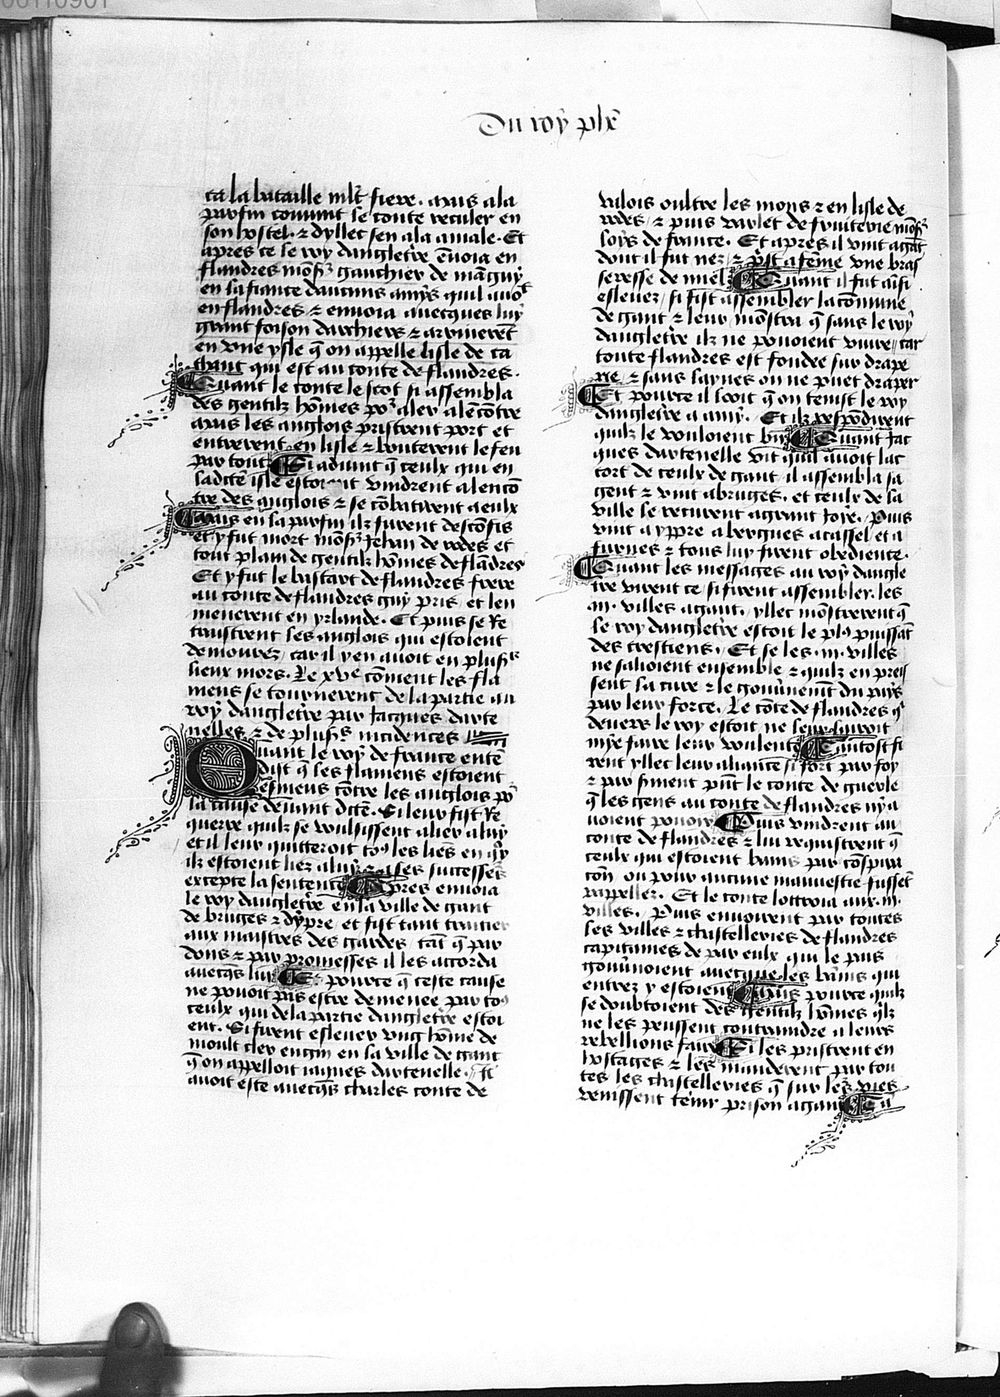 Du roy phe
ca la bataille mlt fiere. mais a la
parfin convint le conte reculer en
son hostel. et dyllec sen ala a male. Et
apres ce le roy dangletere envoia en
flandres mons gauchier de maguy
en la fiance daucuns amys quil avoit
en flandres et envoia avecques luy
grant foison darchiers et arriverent
en une ysle q on appelle lisle de ca
chant qui est au conte de flandres.
Quant le conte le scot si assembla
des gentilz homes por aler alencotre
mais les anglois pristrent port et
entrerent en lisle et bouterent le feu
par tout Si advint q ceulx qui en
ladicte isle estoient vindrent alenco
tre des anglois et se cobatirent a eulx
Mais en la parfin ilz furent descofis
et y fut mort mons Jehan de rodes et
tout plain de gentilz homes de fladres
Et y fut le bastart de flandres frere
au conte de flandres guy pris et len
menerent en yrlande. Et puis se Re
traistrent les anglois qui estoient
demourez car il y en avoit en plusrs
lieux mors. Le xve coment les fla
mens se tournerent de la partie du
roy dangletere par Jacques darte
nelles et de plusrs incidences
Quant le roy de france ente
dist q les flamens estoient
esmeus cotre les anglois por
la cause devant dicte. Si leur fist Re
querre quilz se voulsissent alier a luy
et il leur quitteroit tos les lies en qy
ilz estoient liez a luy et a ses successes
excepte la sentence Apres envoia
le roy dangletere en la ville de gant
de bruges et dypre et fist tant traitier
aux maistres des gardes tat q par
dons et par promesses il les acorda
avecqs luy Et pource q ceste cause
ne povoit pas estre demenee par tos
ceulx qui de la partie dangletere estoi
ent. Si firent eslever ung home de
moult cler engin en la ville de gant
q on appelloit iaques dartevelle. Il
avoit este avecqs charles conte de
valois oultre les mons et en lisle de
rodes et puis varlet de fruiterie mons
loys de france. Et apres il vint a gat
dont il fut nez et pst a feme une bras
seresse de miel Quant il fut aisi
eslevez si fist assembler la comune
de gant et leur mostra q sans le roy
dangletere ilz ne povoient vivre car
toute flandres est fondee sur drape
rie et sans laynes on ne puet draper
Et pource il looit q on tenist le roy
dangletere a amy. Et ilz respodirent
quilz le vouloient bn Quant Jac
ques dartevelle vit quil avoit lac
cort de ceulx de gant il assembla sa
gent et vint a bruges et ceulx de la
ville le recurent a grant Joye. Puis
vint a yppre a bergues a cassel et a
furnes et tous luy firent obedience.
Quant les messages au roy dangle
tre virent ce si firent assembler les
.iii. villes a gant. yllec mostrerent q
le roy dangletere estoit le plus puissat
des crestiens. Et se les .iii. villes
ne salioient ensemble et quilz en preis
sent la cure et le gouvnemt du pays
par leur force. Le cote de flandres q
devers le roy estoit ne leur lairoit
mye faire leur voulente Tantost fi
rent yllec leur aliance si fort par foy
et par sirment pnt le conte de guerle
q les gens au conte de flandres ny a
voient povoir Puis vindrent au
conte de flandres et lui requistrent q
ceulx qui estoient banis par cospira
con ou par aucune mauvestie fussent
rappellez. Et le conte lottroia aux .iii.
villes. Puis envoierent par toutes
les villes et chastelleries de flandres
capitaines de par eulx qui le pais
gouvnoient avecque les banis qui
entrez y estoient Mais pource quilz
se doubtoient des gentilz homes qlz
ne les peussent contraindre a leurs
rebellions faire Si les pristrent en
hostages et les manderent par tou
tes les chastelleries q sur les vies
venissent tenir prison a gant Et a